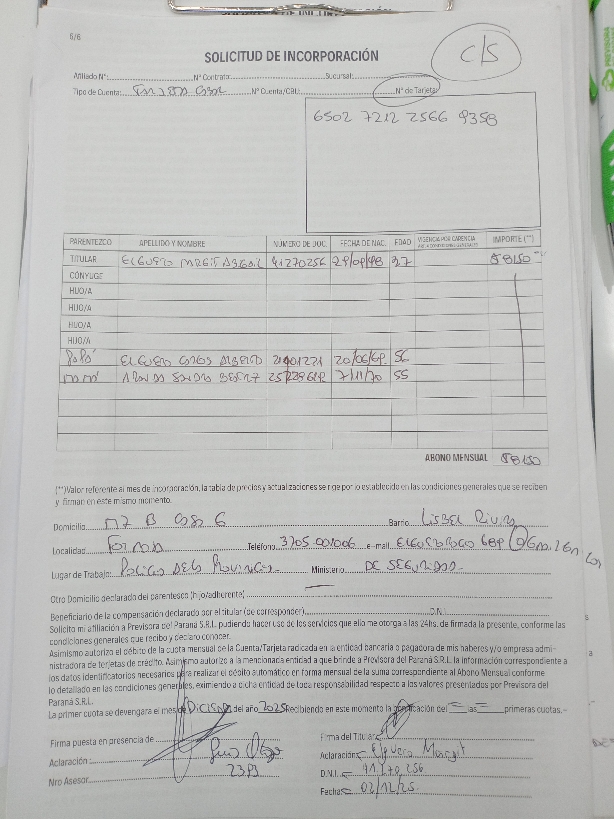 5/6
SOLICITUD DE INCORPORACIÓN
C/S
Afiliado N°: N° Contrato: Sucursal:
Tipo de Cuenta: N° Cuenta/CBU: N° de Tarjeta:
6502 7212 2566 9358
PARENTEZCO APELLIDO Y NOMBRE NÚMERO DE DOC. FECHA DE NAC. EDAD VIGENCIA POR CARENCIA IMPORTE (**)
TITULAR ELGUERO MARGIT ABIGAIL 41270256 27 58150
CÓNYUGE
HIJO/A
HIJO/A
HIJO/A
HIJO/A
PAPÁ ELGUERO CARLOS ALBERTO 20/06/69 56
MAMÁ 7/11/70 55
ABONO MENSUAL 58150
(**)Valor referente al mes de incorporación, la tabla de precios y actualizaciones se rige por lo establecido en las condiciones generales que se reciben
y firman en este mismo momento.
Domicilio MZ B CASA 6 Barrio
Localidad Teléfono 3705-001006 e-mail
Lugar de Trabajo: POLICIA DE LA PROVINCIA Ministerio DE SEGURIDAD
Otro Domicilio declarado del parentesco (hijo/adherente)
Beneficiario de la compensación declarado por el titular (de corresponder) D.N.I.
Solicito mi afiliación a Previsora del Paraná S.R.L. pudiendo hacer uso de los servicios que ello me otorga a las 24hs. de firmada la presente, conforme las
condiciones generales que recibo y declaro conocer.
Asimismo autorizo el débito de la cuota mensual de la Cuenta/Tarjeta radicada en la entidad bancaria o pagadora de mis haberes y/o empresa admi-
nistradora de tarjetas de crédito. Asimismo autorizo a la mencionada entidad a que brinde a Previsora del Paraná S.R.L. la información correspondiente a
los datos identificatorios necesarios para realizar el débito automático en forma mensual de la suma correspondiente al Abono Mensual conforme
lo detallado en las condiciones generales, eximiendo a dicha entidad de toda responsabilidad respecto a los valores presentados por Previsora del
Paraná S.R.L.
La primer cuota se devengara el mes de Diciembre del año 2025 Recibiendo en este momento la bonificación del las primeras cuotas.-
Firma puesta en presencia de Firma del Titular
Aclaración: Aclaración: Elguero Margit
Nro Asesor. D.N.I. 41.270.256
Fecha: 02/12/25